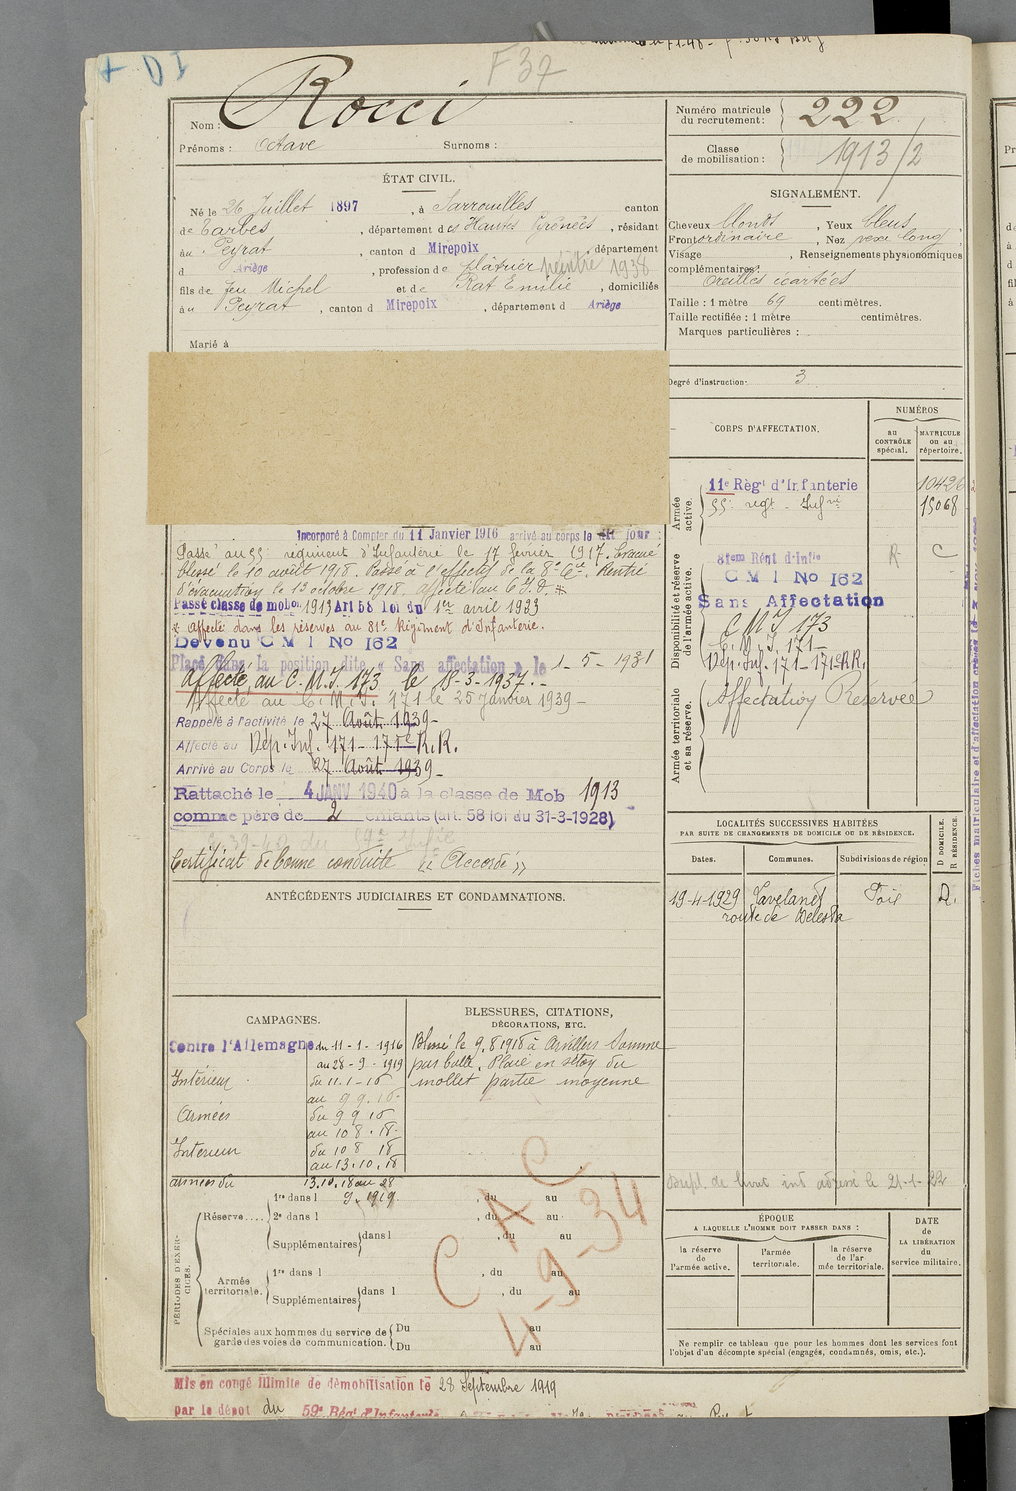 F37
Nom : Rocci
Prénoms : Octave Surnoms :
Numéro matricule du recrutement : 222
Classe de mobilisation : 1913/2
ÉTAT CIVIL.
Né le 26 Juillet 1897, à Sarrouilles canton
de Tarbes, département des Hautes Pyrénées, résidant
au Peyrat, canton d Mirepoix, département
d Ariège, profession de plâtrier peintre 1938
fils de feu Michel et de Rat Emilie, domiciliés
à u Peyrat, canton d Mirepoix, département d Ariège
Marié à
SIGNALEMENT.
Cheveux blonds, Yeux bleus
Front ordinaire, Nez vexe long
Visage , Renseignements physionomiques
complémentaires:
Oreilles écartées
Taille : 1 mètre 69 centimètres.
Taille rectifiée : 1 mètre centimètres.
Marques particulières :
Degré d'instruction. 3
CORPS D'AFFECTATION.
NUMÉROS
au CONTRÔLE spécial.
MATRICULE ou au répertoire.
Armée active.
11e Règt d'Infanterie 10426
55e regt Infrie 15068
Disponibilité et réserve de l'armée active.
81eme Rént d'Infie R C
C M I No 162
Sans Affectation
C M I 173
C. M. I. 171
Dép. Inf. 171 - 171e R.R.
Armée territoriale et sa réserve.
Affectation Réservée
Incorporé à Compter du 11 Janvier 1916 arrivé au corps le dit jour :
Passé au 55e regiment d'Infanterie le 17 fevrier 1917. Evacué
blessé le 10 août 1918. Passé à l'effectif de la 8e Cie. Rentré
d'évacuation le 13 octobre 1918, affecté au C.I.D. *
Passé classe de mobon 1913 Art 58 loi du 1er avril 1923
* affecté dans les réserves au 81e Régiment d'Infanterie.
Devenu C M I No 162
Placé dans la position dite « Sans affectation » le 1-5-1931
Affecté au C.M.I. 173 le 18-3-1937.-
Affecté au C.M.I. 171 le 25 Janvier 1939 -
Rappelé à l'activité le 27 Août 1939 -
Affecté au Dép. Inf. 171 - 171e R.R.
Arrivé au Corps le 27 Août 1939 -
Rattaché le 4 JANV 1940 à la classe de Mob 1913
comme père de 2 enfants (art. 58 loi du 31-3-1928)
Certificat de bonne conduite « Accordé »
ANTÉCÉDENTS JUDICIAIRES ET CONDAMNATIONS.
LOCALITÉS SUCCESSIVES HABITÉES
PAR SUITE DE CHANGEMENTS DE DOMICILE OU DE RÉSIDENCE.
Dates. Communes. Subdivisions de région
D DOMICILE.
R RÉSIDENCE.
19-4-1929 Lavelanet Foix D.
route de Belesta
CAMPAGNES.
Contre l'Allemagne du 11-1-1916
au 28-9-1919
Intérieur du 11-1-16
au 9 9.16
Armées du 9 9 16
au 10 8.18
Interieur du 10 8 18
au 13.10.18
armées du 13.10.18 au 28
9-1919
BLESSURES, CITATIONS,
DÉCORATIONS, ETC.
Blessé le 9.8 1918 à Arvillers Somme
par balle. Plaie en séton du
mollet partie moyenne
C A C
4-9-34
PÉRIODES D'EXERCICES.
Réserve....
1re dans l , du au
2e dans l , du au
Supplémentaires dans l , du au
Armée territoriale.
1re dans l , du au
Supplémentaires dans l , du au
Spéciales aux hommes du service de
garde des voies de communication.
Du au
Du au
ÉPOQUE
A LAQUELLE L'HOMME DOIT PASSER DANS :
la réserve de l'armée active.
l'armée territoriale.
la réserve de l'armée territoriale.
DATE
DE
LA LIBÉRATION
du
service militaire.
Ne remplir ce tableau que pour les hommes dont les services font
l'objet d'un décompte spécial (engagés, condamnés, omis, etc.).
Mis en congé illimité de démobilisation le 28 Septembre 1919
par le dépôt du 59e Régt d'Infanterie